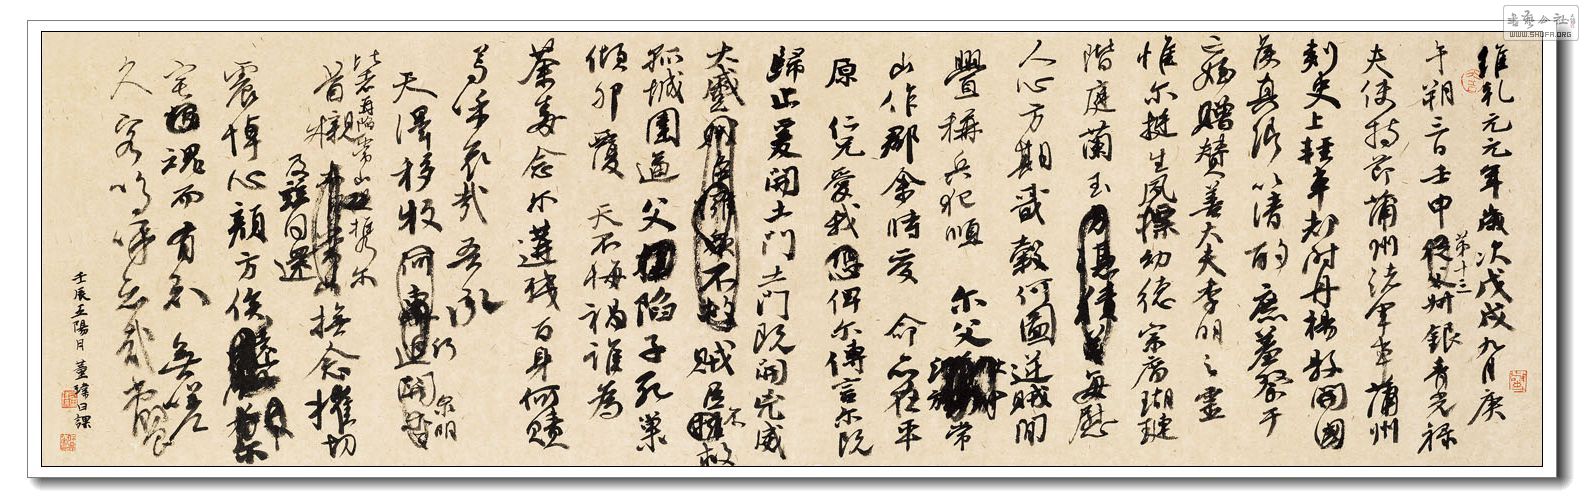 維乾元元年歲次戊戌九月庚
午朔三日壬申第十三從父銀青光祿
夫使持節蒲州諸軍事蒲州
刺史上輕車都尉丹楊縣開國
侯真卿以清酌庶羞祭于
亡姪贈贊善大夫季明之靈
惟爾挺生夙標幼德宗廟瑚璉
階庭蘭玉每慰
人心方期戩穀何圖逆賊閒
釁稱兵犯順爾父常
山作郡余時受命亦在平
原仁兄愛我俾爾傳言爾既
歸止爰開土門土門既開兇威
大蹙賊臣不救
孤城圍逼父陷子死巢
傾卵覆天不悔禍誰為
荼毒念爾遘殘百身何贖
嗚呼哀哉吾承
天澤移牧爾明
比者再陷常山攜爾
首櫬及茲同還撫念摧切
震悼心顏方俟
宅魂而有知無嗟
久客嗚呼哀哉尚饗
壬辰五陽月 日課
书艺公社
WWW.SHUFA.ORG